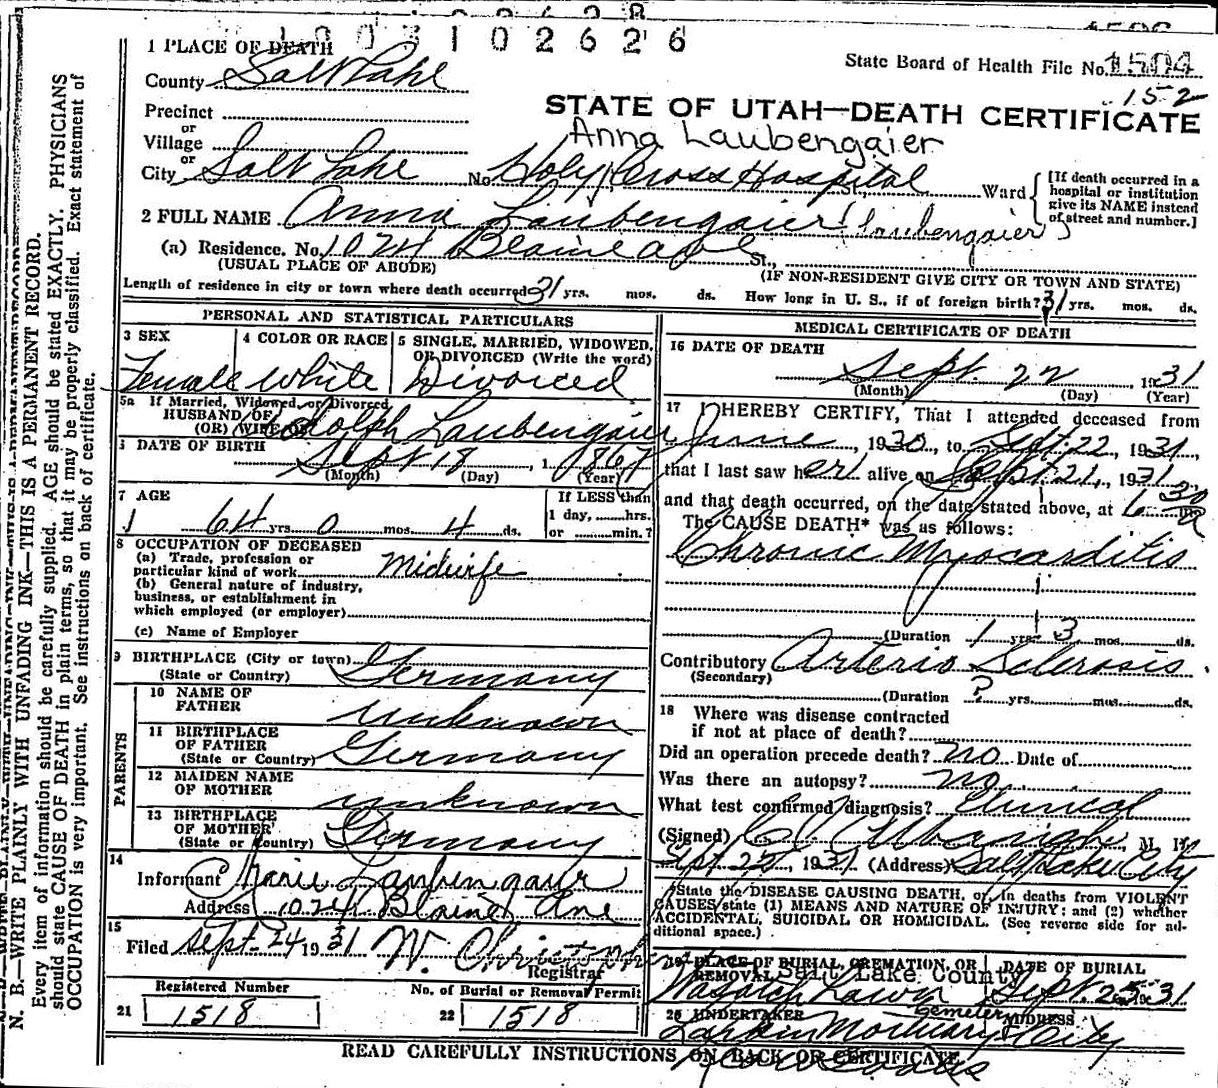 1003102626
1 PLACE OF DEATH
State Board of Health File No. 1504
County Salt Lake
152
STATE OF UTAH—DEATH CERTIFICATE
Precinct
or
Village
Anna Laubengaier
or
City Salt Lake No. Holy Cross Hospital St., Ward
[If death occurred in a hospital or institution give its NAME instead of street and number.]
2 FULL NAME Anna Laubengaier (Laubengaier)
(a) Residence. No. 1024 Blaine ave St.,
(USUAL PLACE OF ABODE) (IF NON-RESIDENT GIVE CITY OR TOWN AND STATE)
Length of residence in city or town where death occurred 31 yrs. mos. ds. How long in U. S., if of foreign birth? 31 yrs. mos. ds.
PERSONAL AND STATISTICAL PARTICULARS
3 SEX
Female
4 COLOR OR RACE
White
5 SINGLE, MARRIED, WIDOWED, OR DIVORCED (Write the word)
Divorced
5a If Married, Widowed, or Divorced
HUSBAND OF
(OR) WIFE OF Adolph Laubengaier
6 DATE OF BIRTH
Sept 18, 1867
(Month) (Day) (Year)
7 AGE
64 yrs. 0 mos. 4 ds.
If LESS than
1 day, hrs.
or min.?
8 OCCUPATION OF DECEASED
(a) Trade, profession or
particular kind of work Midwife
(b) General nature of industry,
business, or establishment in
which employed (or employer)
(c) Name of Employer
9 BIRTHPLACE (City or town)
(State or Country) Germany
PARENTS
10 NAME OF
FATHER unknown
11 BIRTHPLACE
OF FATHER
(State or Country) Germany
12 MAIDEN NAME
OF MOTHER unknown
13 BIRTHPLACE
OF MOTHER
(State or Country) Germany
14
Informant Marie Laubengaier
Address 1024 Blaine Ave
15
Filed Sept 24 1931 W. Christoph
Registrar
Registered Number
21 1518
No. of Burial or Removal Permit
22 1518
MEDICAL CERTIFICATE OF DEATH
16 DATE OF DEATH
Sept. 22, 1931
(Month) (Day) (Year)
17 I HEREBY CERTIFY, That I attended deceased from
June, 1930, to Sept. 22, 1931,
that I last saw her alive on Sept. 21, 1931
and that death occurred, on the date stated above, at 6 30 a m
The CAUSE DEATH* was as follows:
Chronic Myocarditis
(Duration 1 yrs. 3 mos. ds.
Contributory Arterio Sclerosis.
(Secondary)
(Duration ? yrs. mos. ds.
18 Where was disease contracted
if not at place of death?
Did an operation precede death? no Date of
Was there an autopsy? no
What test confirmed diagnosis? Clinical
(Signed) M. D.
Sept. 22, 1931 (Address) Salt Lake City
*State the DISEASE CAUSING DEATH, or, in deaths from VIOLENT
CAUSES state (1) MEANS AND NATURE OF INJURY; and (2) whether
ACCIDENTAL, SUICIDAL OR HOMICIDAL. (See reverse side for additional space.)
19 PLACE OF BURIAL, CREMATION, OR
REMOVAL Salt Lake County
Wasatch Lawn
Cemetery
DATE OF BURIAL
Sept. 25 1931
20 UNDERTAKER ADDRESS
Larkin Mortuary City
READ CAREFULLY INSTRUCTIONS ON BACK OR CERTIFICATE
N. B.—WRITE PLAINLY WITH UNFADING INK—THIS IS A PERMANENT RECORD.
Every item of information should be carefully supplied. AGE should be stated EXACTLY. PHYSICIANS
should state CAUSE OF DEATH in plain terms, so that it may be properly classified. Exact statement of
OCCUPATION is very important. See instructions on back of certificate.